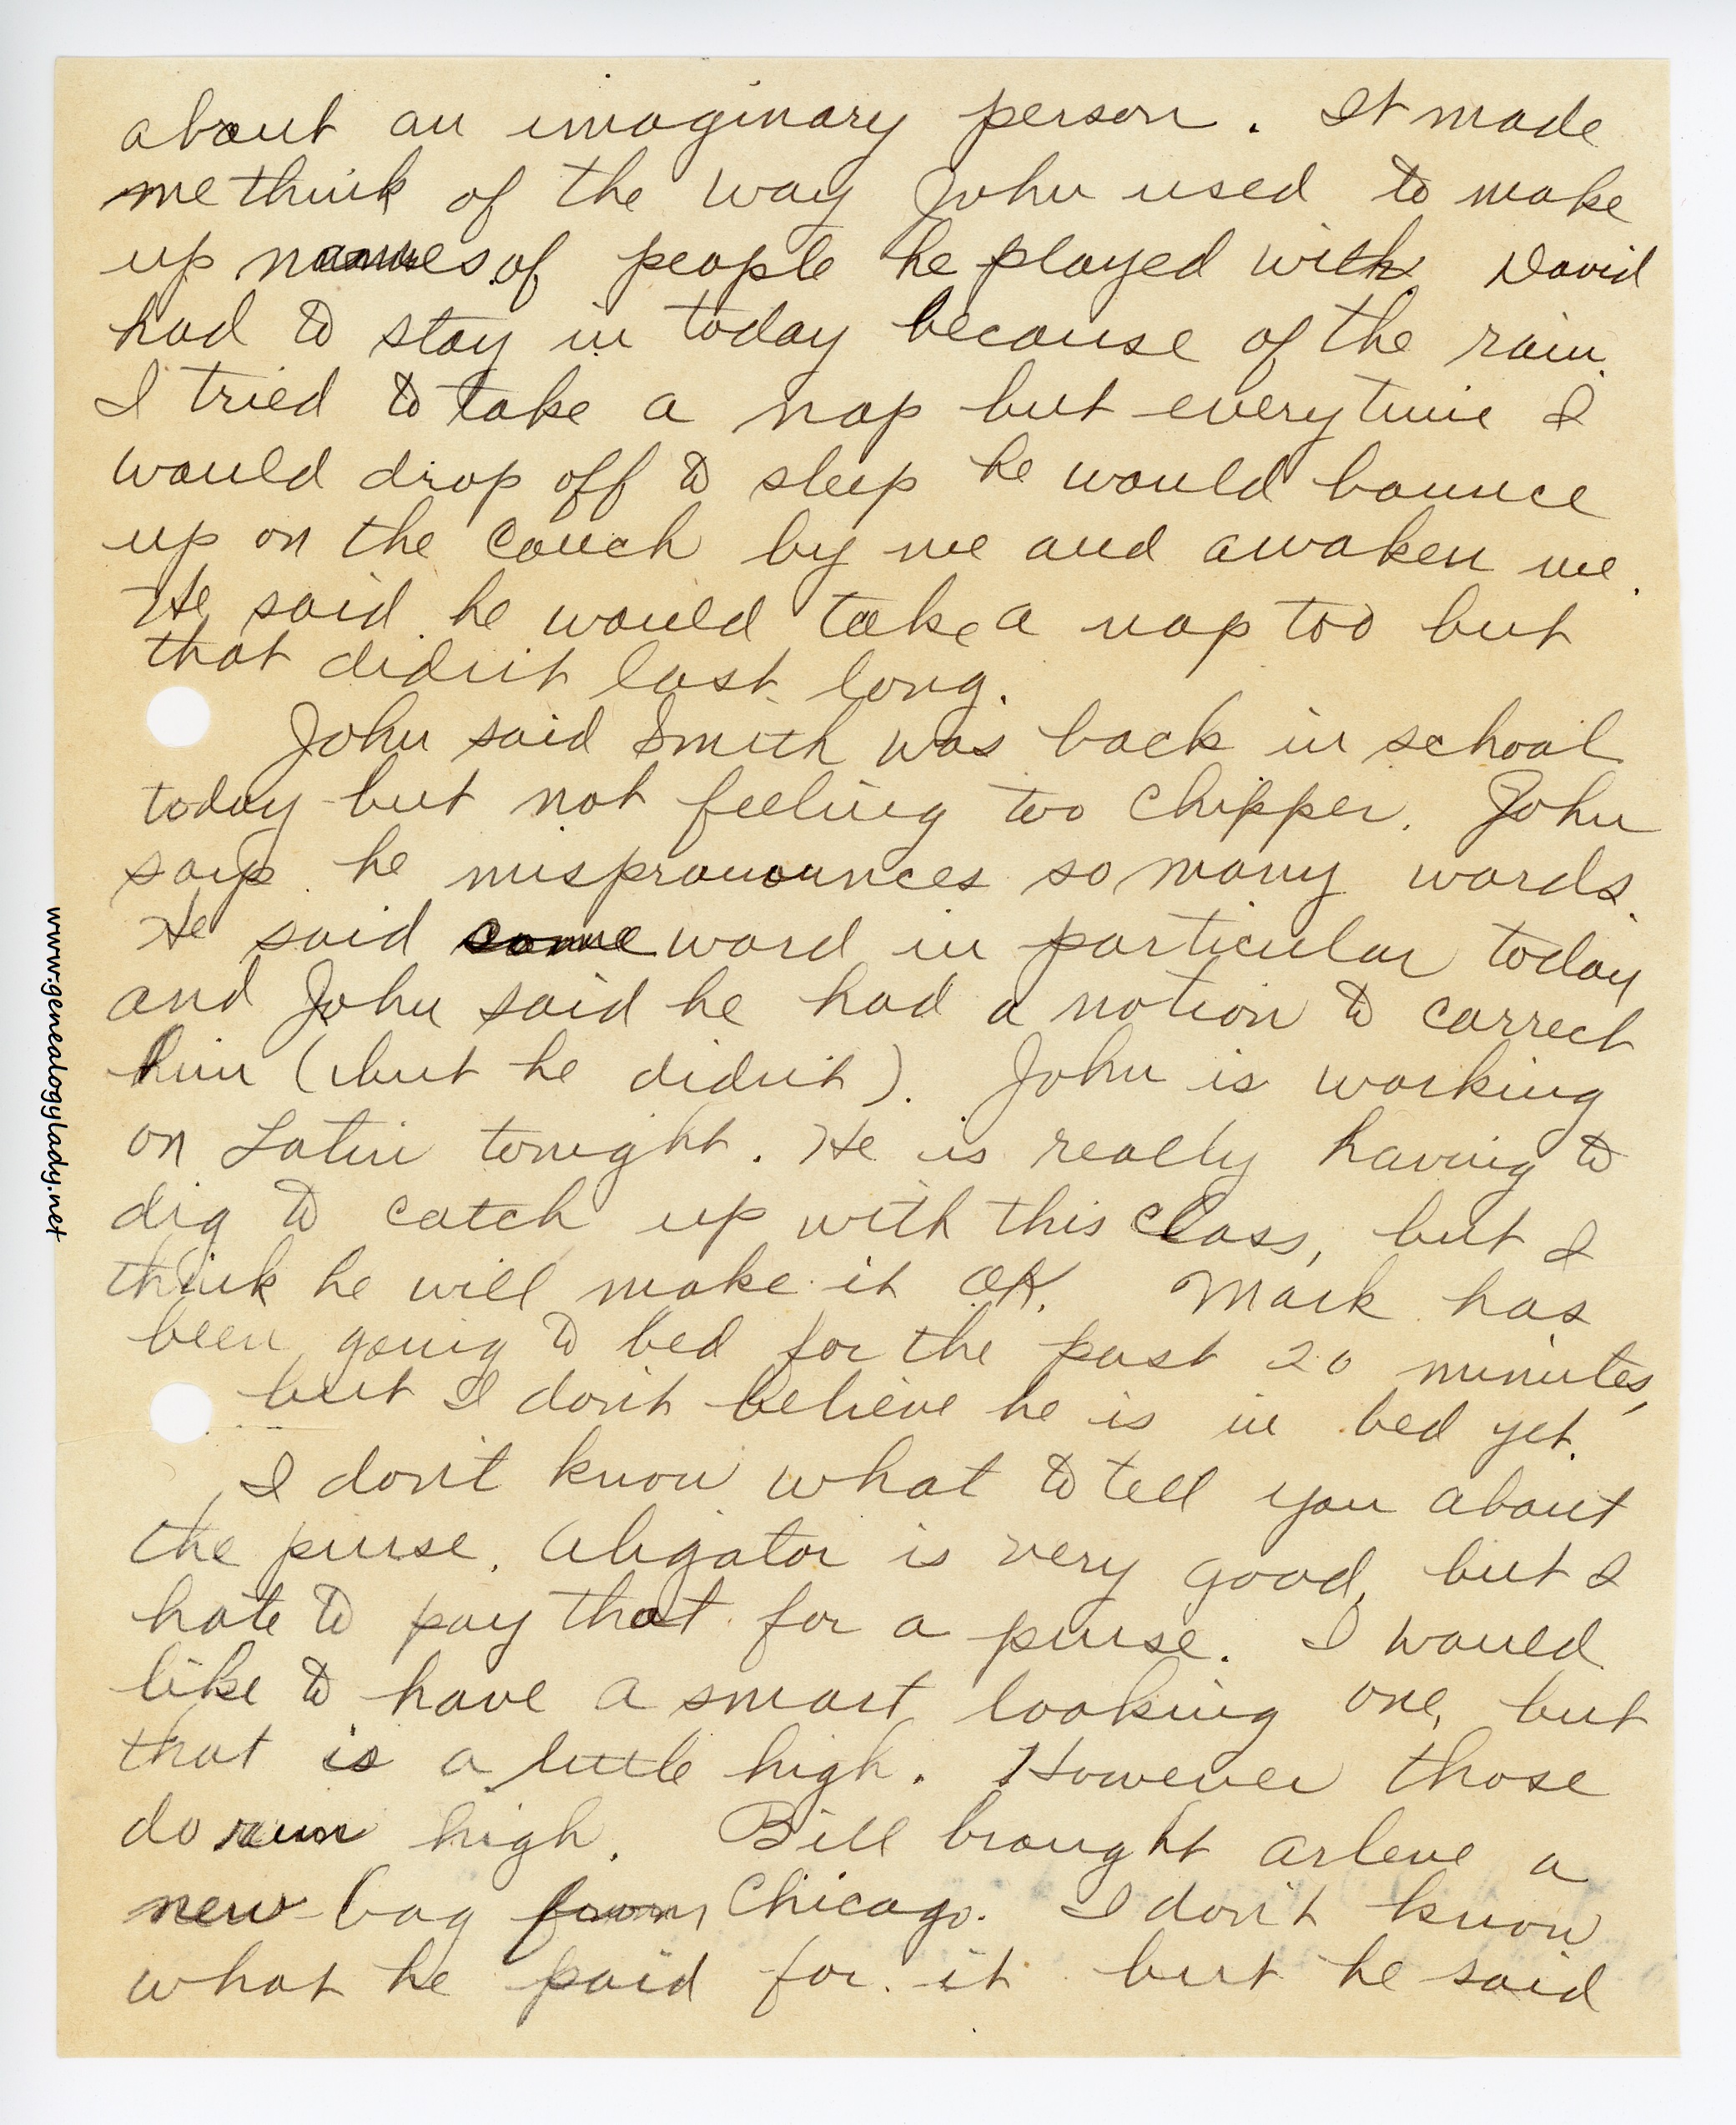 about an imaginary person. It made
me think of the way John used to make
up names of people he played with. David
had to stay in today because of the rain.
I tried to take a nap but everytime I
would drop off to sleep he would bounce
up on the couch by me and awaken me.
He said he would take a nap too but
that didn't last long.
John said Smith was back in school
today but not feeling too chipper. John
says he mispronounces so many words.
He said some word in particular today
and John said he had a notion to correct
him (but he didn't). John is working
on Latin tonight. He is really having to
dig to catch up with this class, but I
think he will make it OK. Mark has
been going to bed for the past 20 minutes,
but I don't believe he is in bed yet.
I don't know what to tell you about
the purse. Aligator is very good, but I
hate to pay that for a purse. I would
like to have a smart looking one, but
that is a little high. However those
do run high. Bill brought Arlene a
new bag from Chicago. I don't know
what he paid for it but he said
www.genealogylady.net